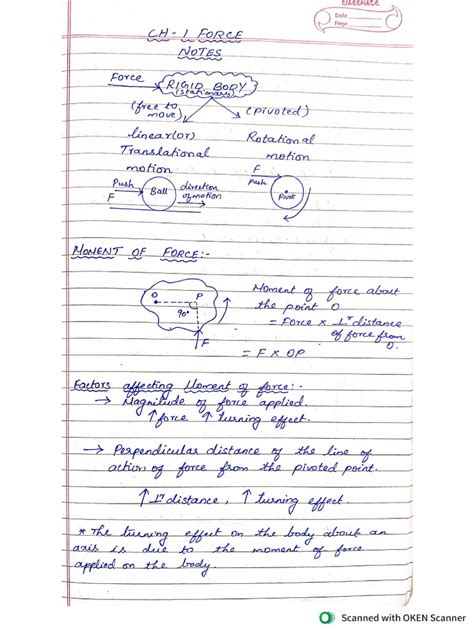 Date
Page
CH-1 FORCE
NOTES
Force
RIGID BODY
(stationary)
(free to move)
(pivoted)
linear(or)
Translational
motion
Rotational
motion
Push
F
Ball
direction
of motion
F
Push
Pivot
MOMENT OF FORCE:-
O
P
90°
F
Moment of force about
the point O
= Force × ⊥r distance
of force from
O.
= F × OP
Factors affecting Moment of force:-
→ Magnitude of force applied.
↑ force ↑ turning effect.
→ Perpendicular distance of the line of
action of force from the pivoted point.
↑ ⊥r distance, ↑ turning effect.
* The turning effect on the body about an
axis is due to the moment of force
applied on the body.
Scanned with OKEN Scanner